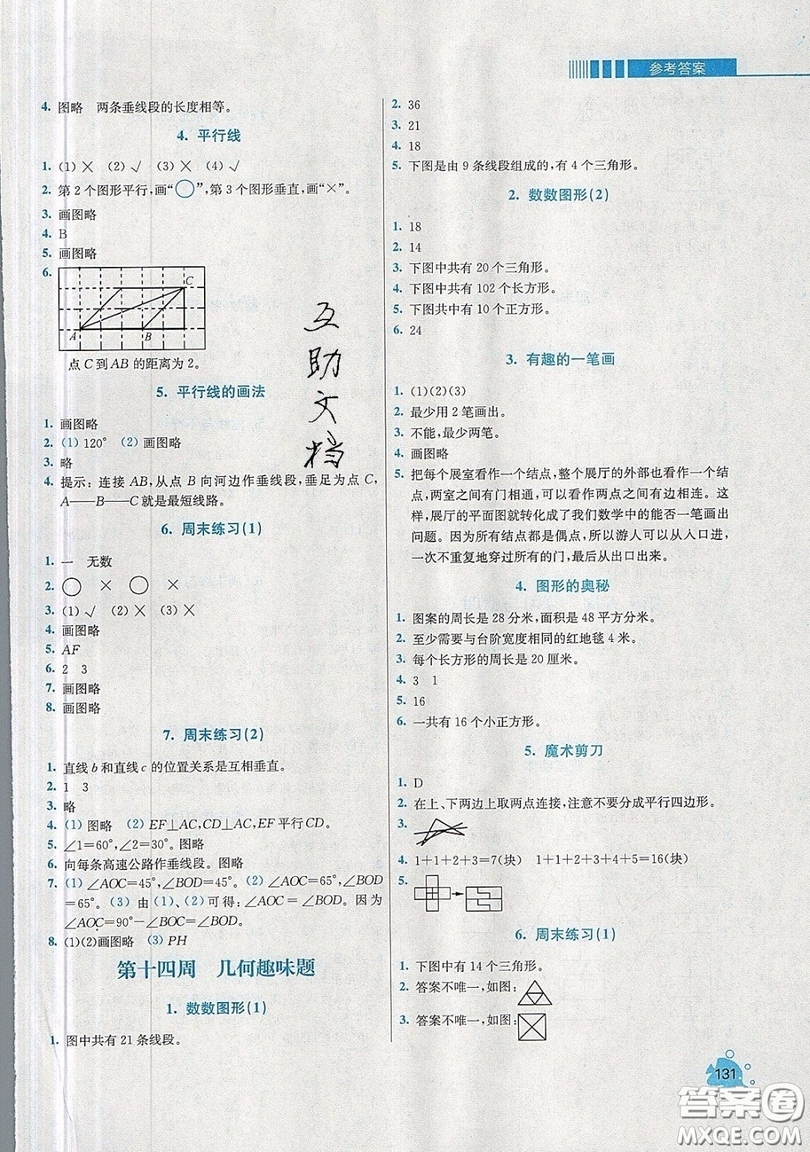 参考答案
4. 图略 两条垂线段的长度相等。
4. 平行线
1. (1)× (2)√ (3)× (4)√
2. 第2个图形平行,画“○”,第3个图形垂直,画“×”。
3. 画图略
4. B
5. 画图略
6.
C
A B
点C到AB的距离为2。
5. 平行线的画法
1. 画图略
2. (1) 120° (2) 画图略
3. 略
4. 提示: 连接AB,从点B向河边作垂线段,垂足为点C,
A——B——C就是最短线路。
6. 周末练习(1)
1. 一 无数
2. ○ × ○ ×
3. (1)√ (2)× (3)×
4. 画图略
5. AF
6. 2 3
7. 画图略
8. 画图略
7. 周末练习(2)
1. 直线b和直线c的位置关系是互相垂直。
2. 1 3
3. 略
4. (1) 图略 (2) EF⊥AC,CD⊥AC,EF平行CD。
5. ∠1=60°,∠2=30°。图略
6. 向每条高速公路作垂线段。图略
7. (1) ∠AOC=45°,∠BOD=45°。(2) ∠AOC=65°,∠BOD
=65°。(3) 由(1)、(2)可得: ∠AOC=∠BOD。因为
∠AOC=90°-∠BOC=∠BOD。
8. (1)(2)画图略 (3) PH
第十四周 几何趣味题
1. 数数图形(1)
1. 图中共有21条线段。
互
助
文
档
2. 36
3. 21
4. 18
5. 下图是由9条线段组成的,有4个三角形。
2. 数数图形(2)
1. 18
2. 14
3. 下图中共有20个三角形。
4. 下图中共有102个长方形。
5. 下图共中有10个正方形。
6. 24
3. 有趣的一笔画
1. (1)(2)(3)
2. 最少用2笔画出。
3. 不能,最少两笔。
4. 画图略
5. 把每个展室看作一个结点,整个展厅的外部也看作一个结
点,两室之间有门相通,可以看作两点之间有边相连。这
样,展厅的平面图就转化成了我们数学中的能否一笔画出
问题。因为所有结点都是偶点,所以游人可以从入口进,
一次不重复地穿过所有的门,最后从出口出来。
4. 图形的奥秘
1. 图案的周长是28分米,面积是48平方分米。
2. 至少需要与台阶宽度相同的红地毯4米。
3. 每个长方形的周长是20厘米。
4. 3 1
5. 16
6. 一共有16个小正方形。
5. 魔术剪刀
1. D
2. 在上、下两边上取两点连接,注意不要分成平行四边形。
3.
4. 1+1+2+3=7(块) 1+1+2+3+4+5=16(块)
5.
6. 周末练习(1)
1. 下图中有14个三角形。
2. 答案不唯一,如图:
3. 答案不唯一,如图:
131
答案圈
MXQE.COM